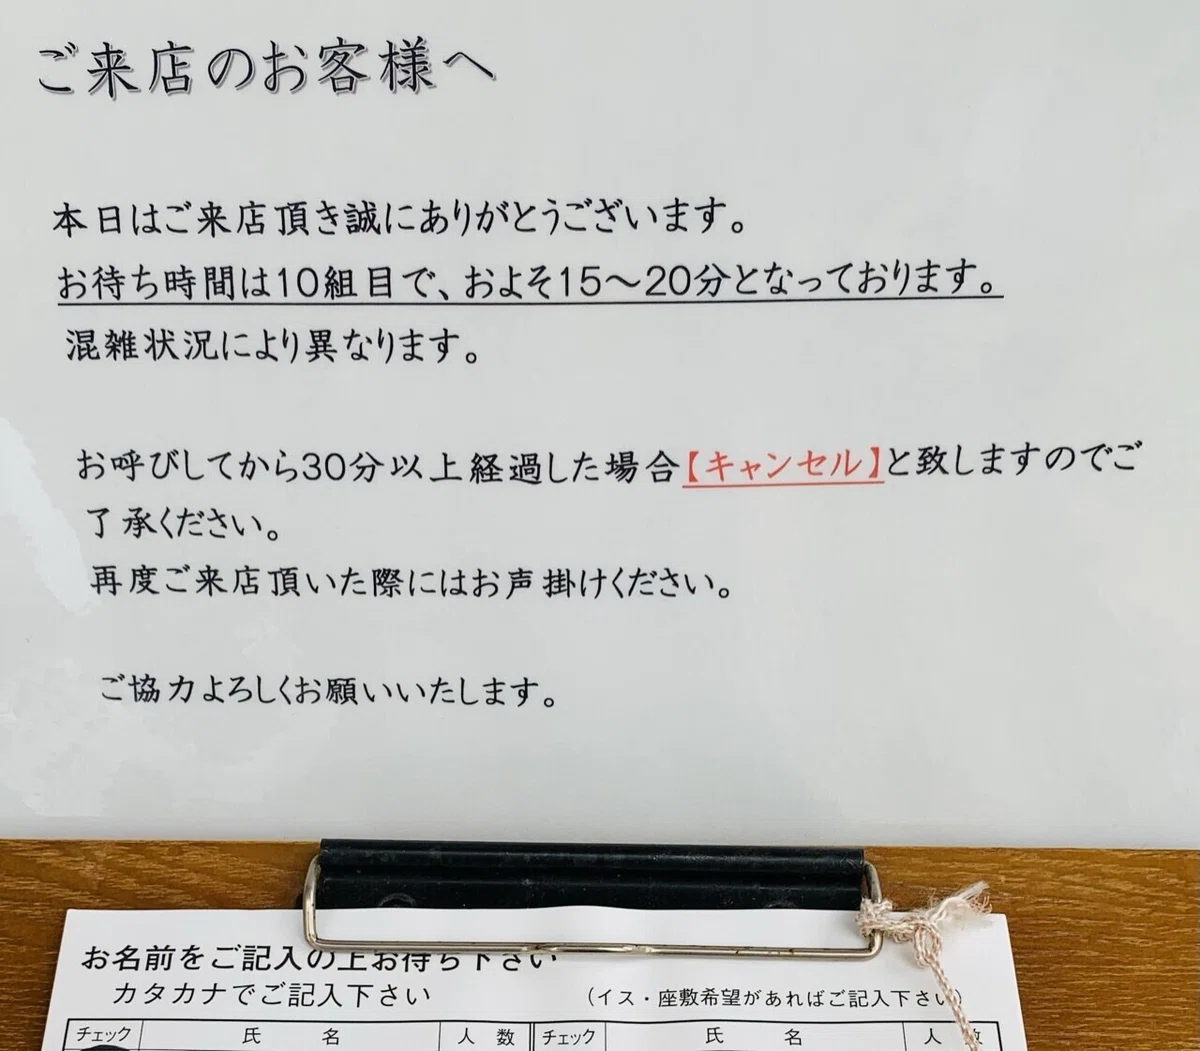 ご来店のお客様へ
本日はご来店頂き誠にありがとうございます。
お待ち時間は10組目で、およそ15～20分となっております。
混雑状況により異なります。
お呼びしてから30分以上経過した場合【キャンセル】と致しますのでご
了承ください。
再度ご来店頂いた際にはお声掛けください。
ご協力よろしくお願いいたします。
お名前をご記入の上お待ち下さい
カタカナでご記入下さい （イス・座敷希望があればご記入下さい）
チェック 氏名 人数 チェック 氏名 人数